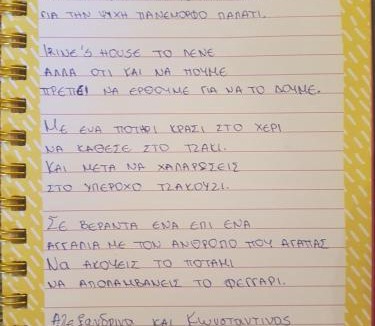 ΓΙΑ ΤΗΝ ΨΥΧΗ ΠΑΝΕΜΟΡΦΟ ΠΑΛΑΤΙ.
IRINE'S HOUSE ΤΟ ΛΕΝΕ
ΑΛΛΑ ΟΤΙ ΚΑΙ ΝΑ ΠΟΥΜΕ
ΠΡΕΠΕΙ ΝΑ ΕΡΘΟΥΜΕ ΓΙΑ ΝΑ ΤΟ ΔΟΥΜΕ.
ΜΕ ΕΝΑ ΠΟΤΗΡΙ ΚΡΑΣΙ ΣΤΟ ΧΕΡΙ
ΝΑ ΚΑΘΕΣΕ ΣΤΟ ΤΖΑΚΙ.
ΚΑΙ ΜΕΤΑ ΝΑ ΧΑΛΑΡΩΣΕΙΣ
ΣΤΟ ΥΠΕΡΟΧΟ ΤΖΑΚΟΥΖΙ.
ΣΕ ΒΕΡΑΝΤΑ ΕΝΑ ΕΠΙ ΕΝΑ
ΑΓΓΑΛΙΑ ΜΕ ΤΟΝ ΑΝΘΡΟΠΟ ΠΟΥ ΑΓΑΠΑΣ
ΝΑ ΑΚΟΥΕΙΣ ΤΟ ΠΟΤΑΜΙ
ΝΑ ΑΠΟΛΑΜΒΑΝΕΙΣ ΤΟ ΦΕΓΓΑΡΙ.
Αλεξανδρινα και Κωνσταντινος